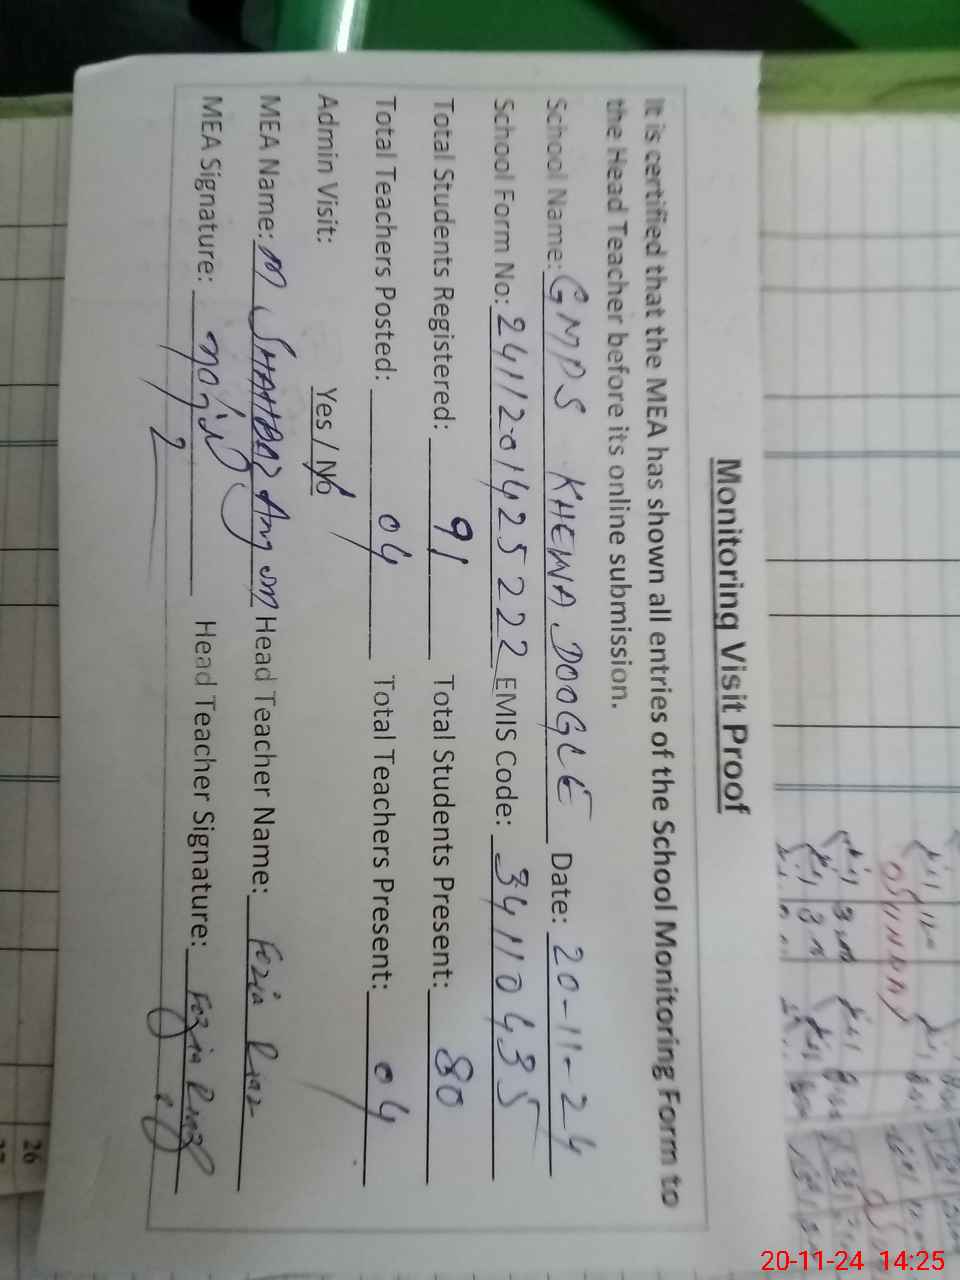 Monitoring Visit Proof
It is certified that the MEA has shown all entries of the School Monitoring Form to
the Head Teacher before its online submission.
School Name: GMPS KHEWA DOOGLE Date: 20-11-24
School Form No: 241120142 5222 EMIS Code: 34110435
Total Students Registered: 91 Total Students Present: 80
Total Teachers Posted: 04 Total Teachers Present: 04
Admin Visit: Yes / No
MEA Name: M SHAHBAZ Head Teacher Name: Fozia Riaz
MEA Signature: Head Teacher Signature: Fozia Riaz
26
20-11-24 14:25